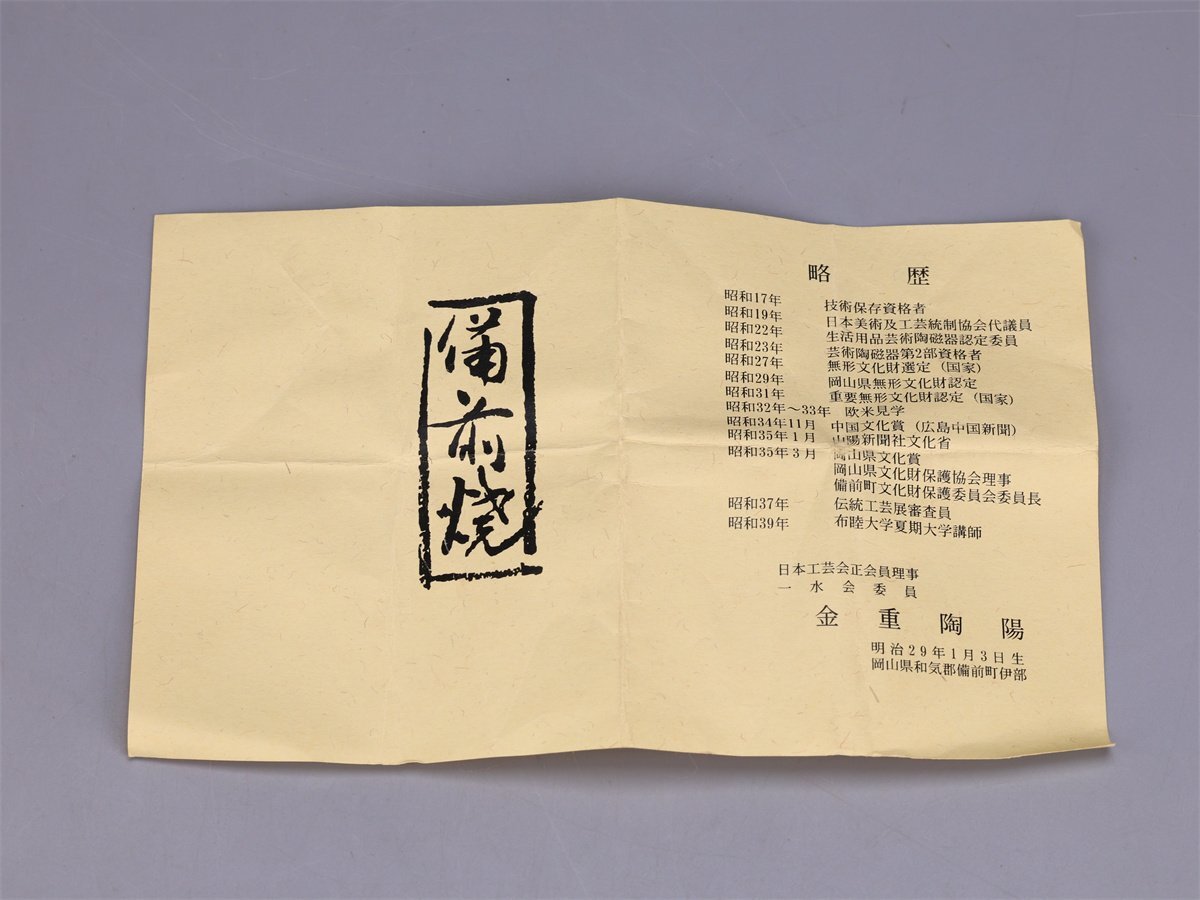 備前焼
略歴
昭和17年 技術保存資格者
昭和19年 日本美術及工芸統制協会代議員
昭和22年 生活用品芸術陶磁器認定委員
昭和23年 芸術陶磁器第2部資格者
昭和27年 無形文化財選定（国家）
昭和29年 岡山県無形文化財認定
昭和31年 重要無形文化財認定（国家）
昭和32年～33年 欧米見学
昭和34年11月 中国文化賞（広島中国新聞）
昭和35年1月 山陽新聞社文化省
昭和35年3月 岡山県文化賞
岡山県文化財保護協会理事
備前町文化財保護委員会委員長
昭和37年 伝統工芸展審査員
昭和39年 布睦大学夏期大学講師
日本工芸会正会員理事
一水会委員
金重陶陽
明治29年1月3日生
岡山県和気郡備前町伊部